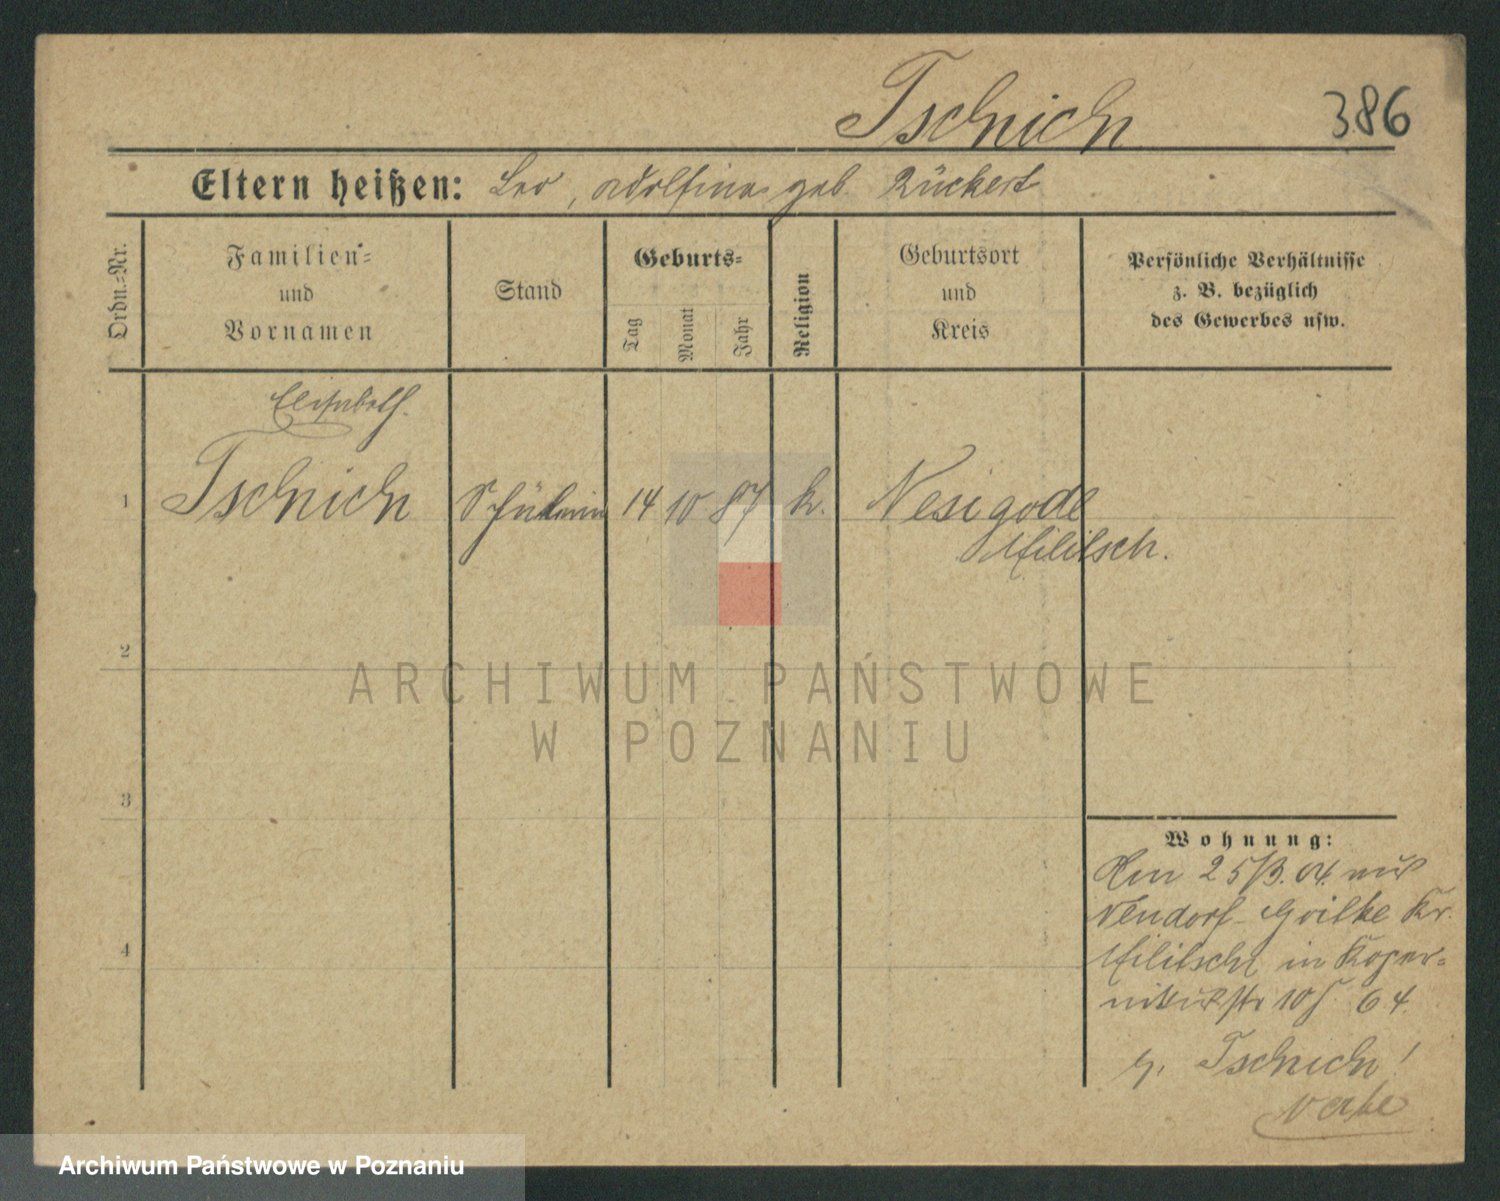 Tschich
386
Eltern heißen: Leo, Adolfine geb. Rückert
Ordn.=Nr.
Familien=
und
Vornamen
Stand
Geburts=
Tag
Monat
Jahr
Religion
Geburtsort
und
Kreis
Persönliche Verhältnisse
z. B. bezüglich
des Gewerbes usw.
Elisabeth
1 Tschich Schülerin 14 10 87 k. Nesigode
Militsch.
2
ARCHIWUM PAŃSTWOWE
W POZNANIU
3
Wohnung:
Am 25/3.04. aus
Neudorf- Kr.
Militsch in Koper=
nikusstr 10 64.
Tschich!
4
Archiwum Państwowe w Poznaniu